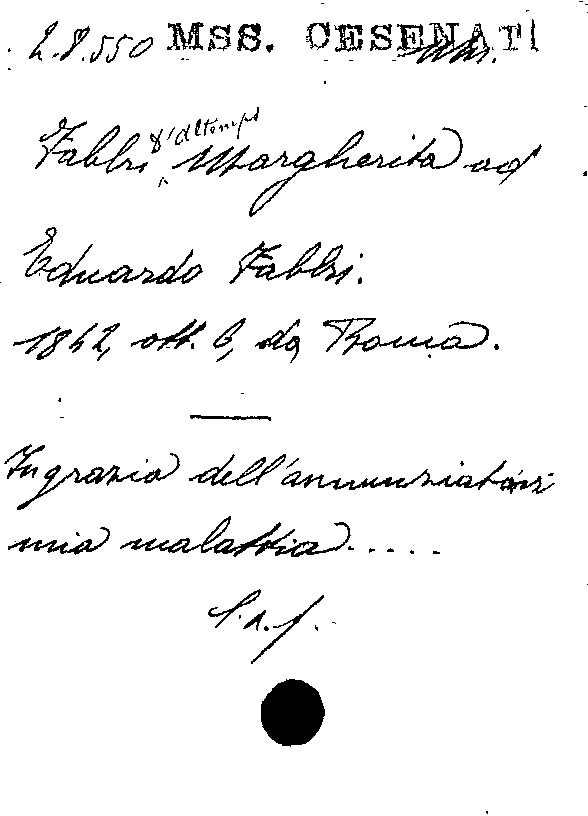 2.8.550 MSS. CESENATI
Fabbri d'Altemps Margherita ad
Eduardo Fabbri.
1842, ott. 6, da Roma.
In grazia dell'annunziatasi
mia malattia.....
L.a.f.